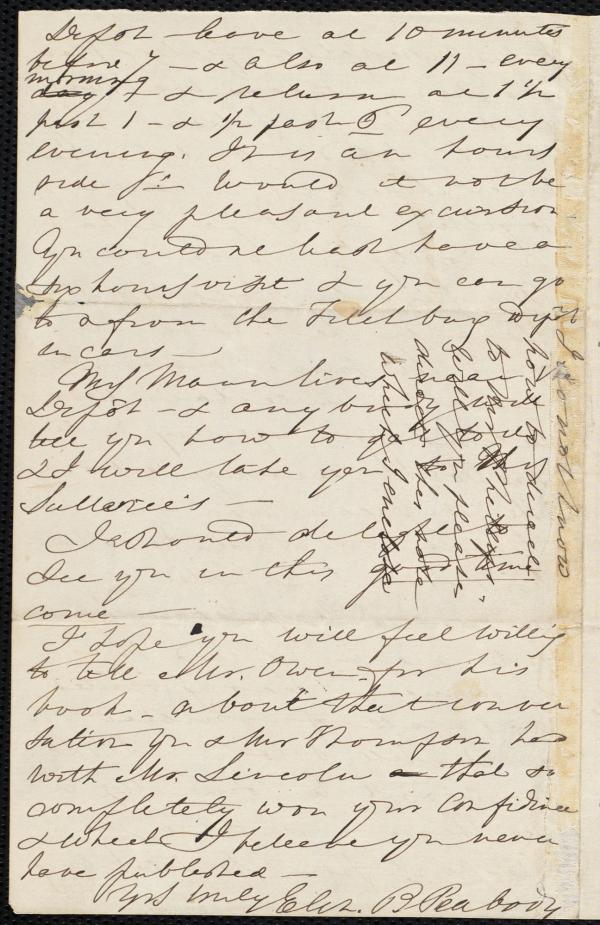 Depot - leave at 10 minutes
before 7 - & also at 11 - every
morning
day & return at 1/2
past 1 - & 1/2 past 6 every
evening. It is an hours
ride Would it not be
a very pleasant excursion
You could at least have a
six hours visit & you can go
to & from the Fitchburg Depot
in cars
Mrs Mann lives near the
Depot - & any body will
tell you how to go to her
& I will take you to
Sullivan's -
I should delight to
see you in this good time
come -
I hope you will feel willing
to tell Mr. Owen - for his
book - about that conver
sation you & Mr Thompson had
with Mr. Lincoln - that so
completely won your confidence
& which I believe you never
have published -
Yrs truly Eliz. B Peabody
I do not know
how to direct
to
Will you please
direct this note
which I enclose